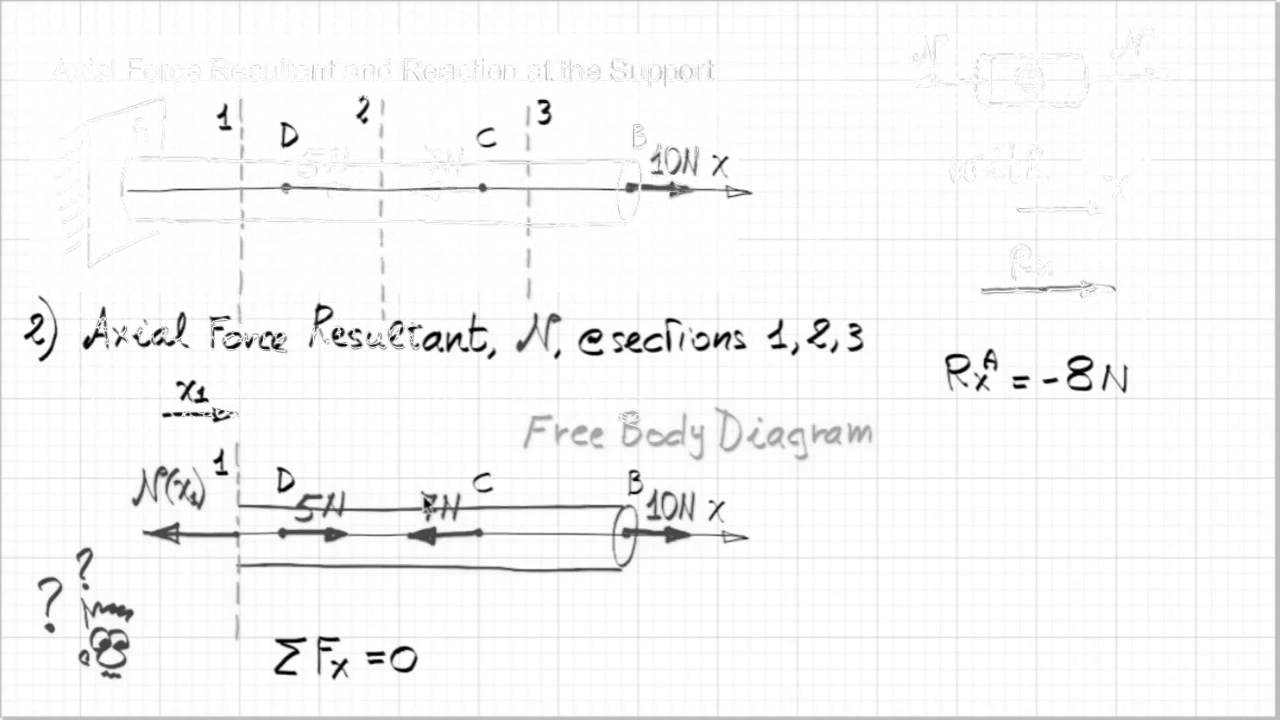 Axial Force Resultant and Reaction at the Support
N N
1 D 2 C 3 B
5N 7N 10N x
with
x
Rx
2) Axial Force Resultant, N, @sections 1,2,3
RxA = -8N
x1
Free Body Diagram
1 D C B
N(x1) 5N 7N 10N x
? ?
ΣFx = 0